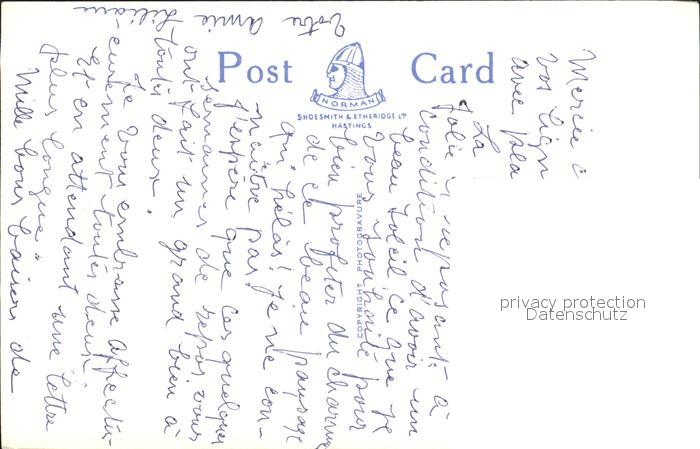 Post Card
NORMAN
SHOESMITH & ETHERIDGE LTD
HASTINGS
COPYRIGHT PHOTOGRAVURE
privacy protection
Datenschutz
Merci à
vos lign
avec pla
La
jolie & reposant à
condition d'avoir un
beau soleil ce que je
vous souhaite pour
bien profiter du charme
de ce beau paysage
qu' hélas! je ne con-
naître pas!
J'espère que ces quelques
semaines de repos vous
ont fait un grand bien à
toutes deux.
Je vous embrasse affectu-
eusement toutes deux
Et en attendant une lettre
plus longue.
Mille bons baisers de
Votre amie Liliane